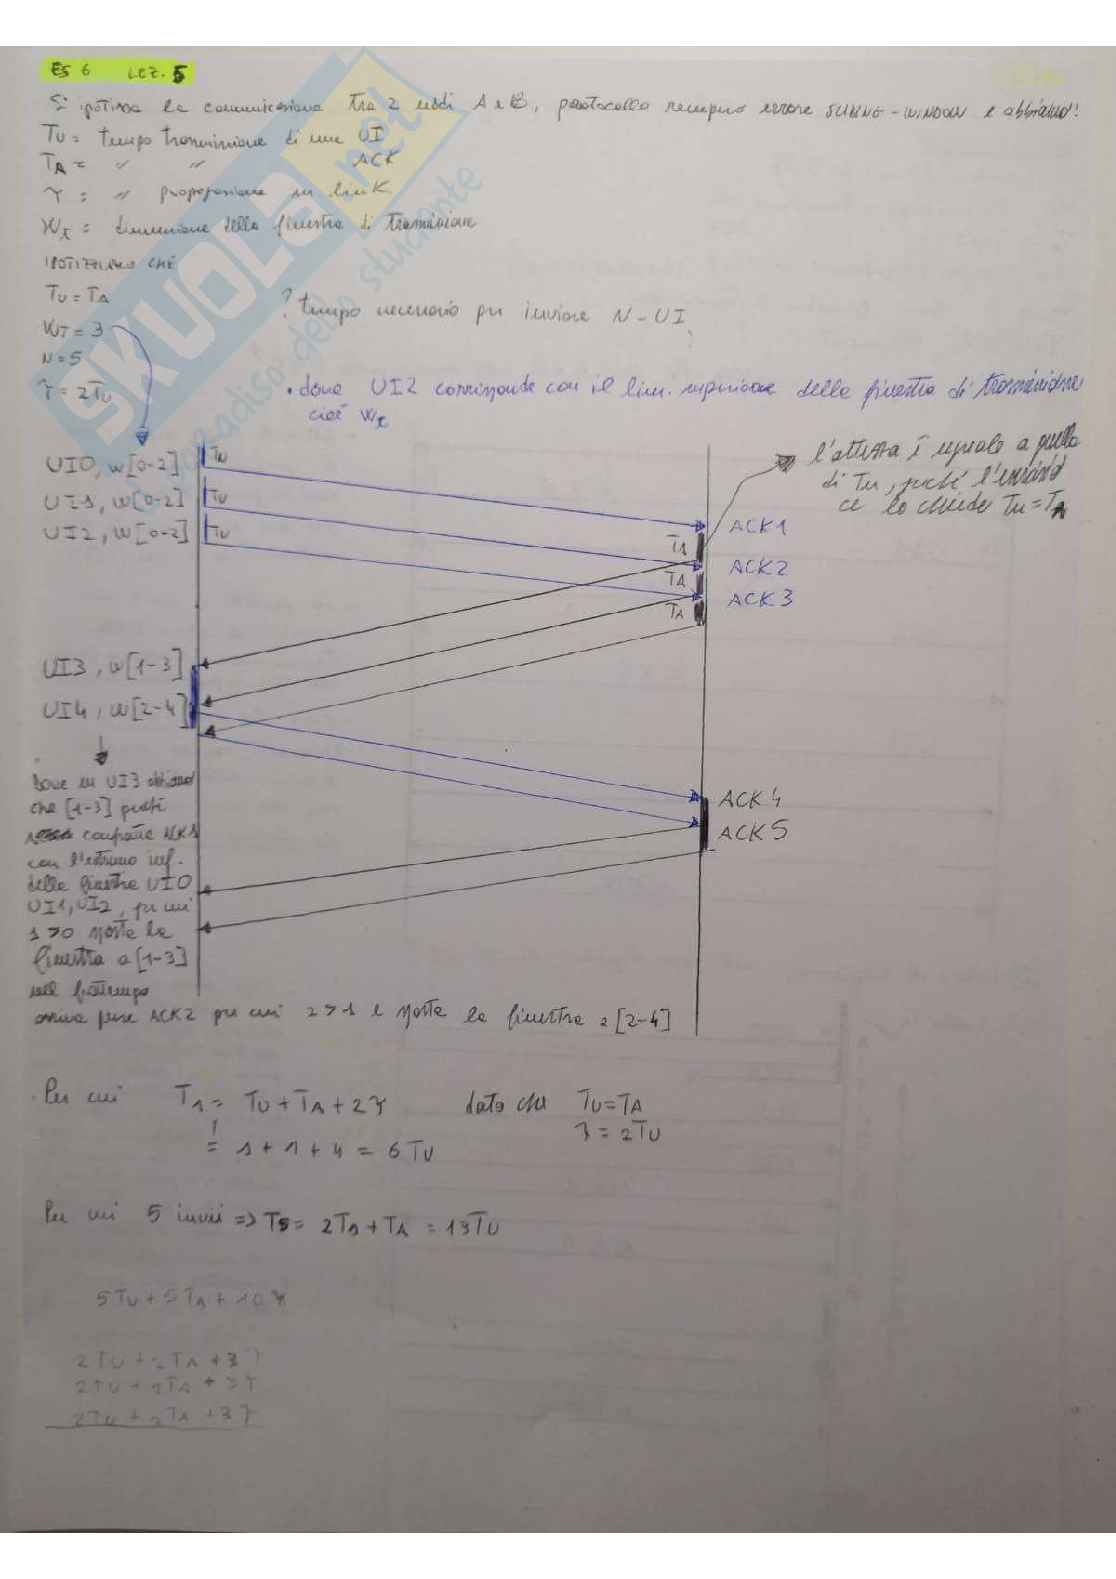 ES 6 LEZ. 5
Si ipotizza la comunicazione tra 2 nodi A e B, protocollo recupero errore SLIDING-WINDOW e abbiamo:
TU = tempo trasmissione di una UI
TA = " " ACK
τ = " propagazione su link
WT = dimensione della finestra di trasmissione
IPOTIZZIAMO CHE
TU = TA
WT = 3
N = 5
τ = 2TU
? tempo necessario per inviare N-UI
• dove UI2 corrisponde con il lim. superiore della finestra di trasmissione
cioè Wt
l'attesa è uguale a quella
di Tu, perché l'esercizio
ce lo chiede Tu = TA
UI0, w[0-2] TU
UI1, w[0-2] TU
UI2, w[0-2] TU
ACK1
TA
ACK2
TA
ACK3
TA
UI3, w[1-3]
UI4, w[2-4]
dove in UI3
che [1-3] perché
confronta ACK1
con l'estremo inf.
della finestra UI0
UI1, UI2, per cui
1 > 0 sposta la
finestra a [1-3]
nel frattempo
arriva pure ACK2 per cui 2 > 1 e sposta la finestra a [2-4]
ACK4
ACK5
Per cui T1 = TU + TA + 2τ dato che TU = TA
τ = 2TU
= 1 + 1 + 4 = 6TU
Per cui 5 invii => T5 = 2T1 + TA = 13TU
5TU + 5TA + 10τ
2TU + 2TA + 3τ
2TU + 2TA + 3τ
2TU + 2TA + 3τ
SKUOLA.net
paradiso dello studente